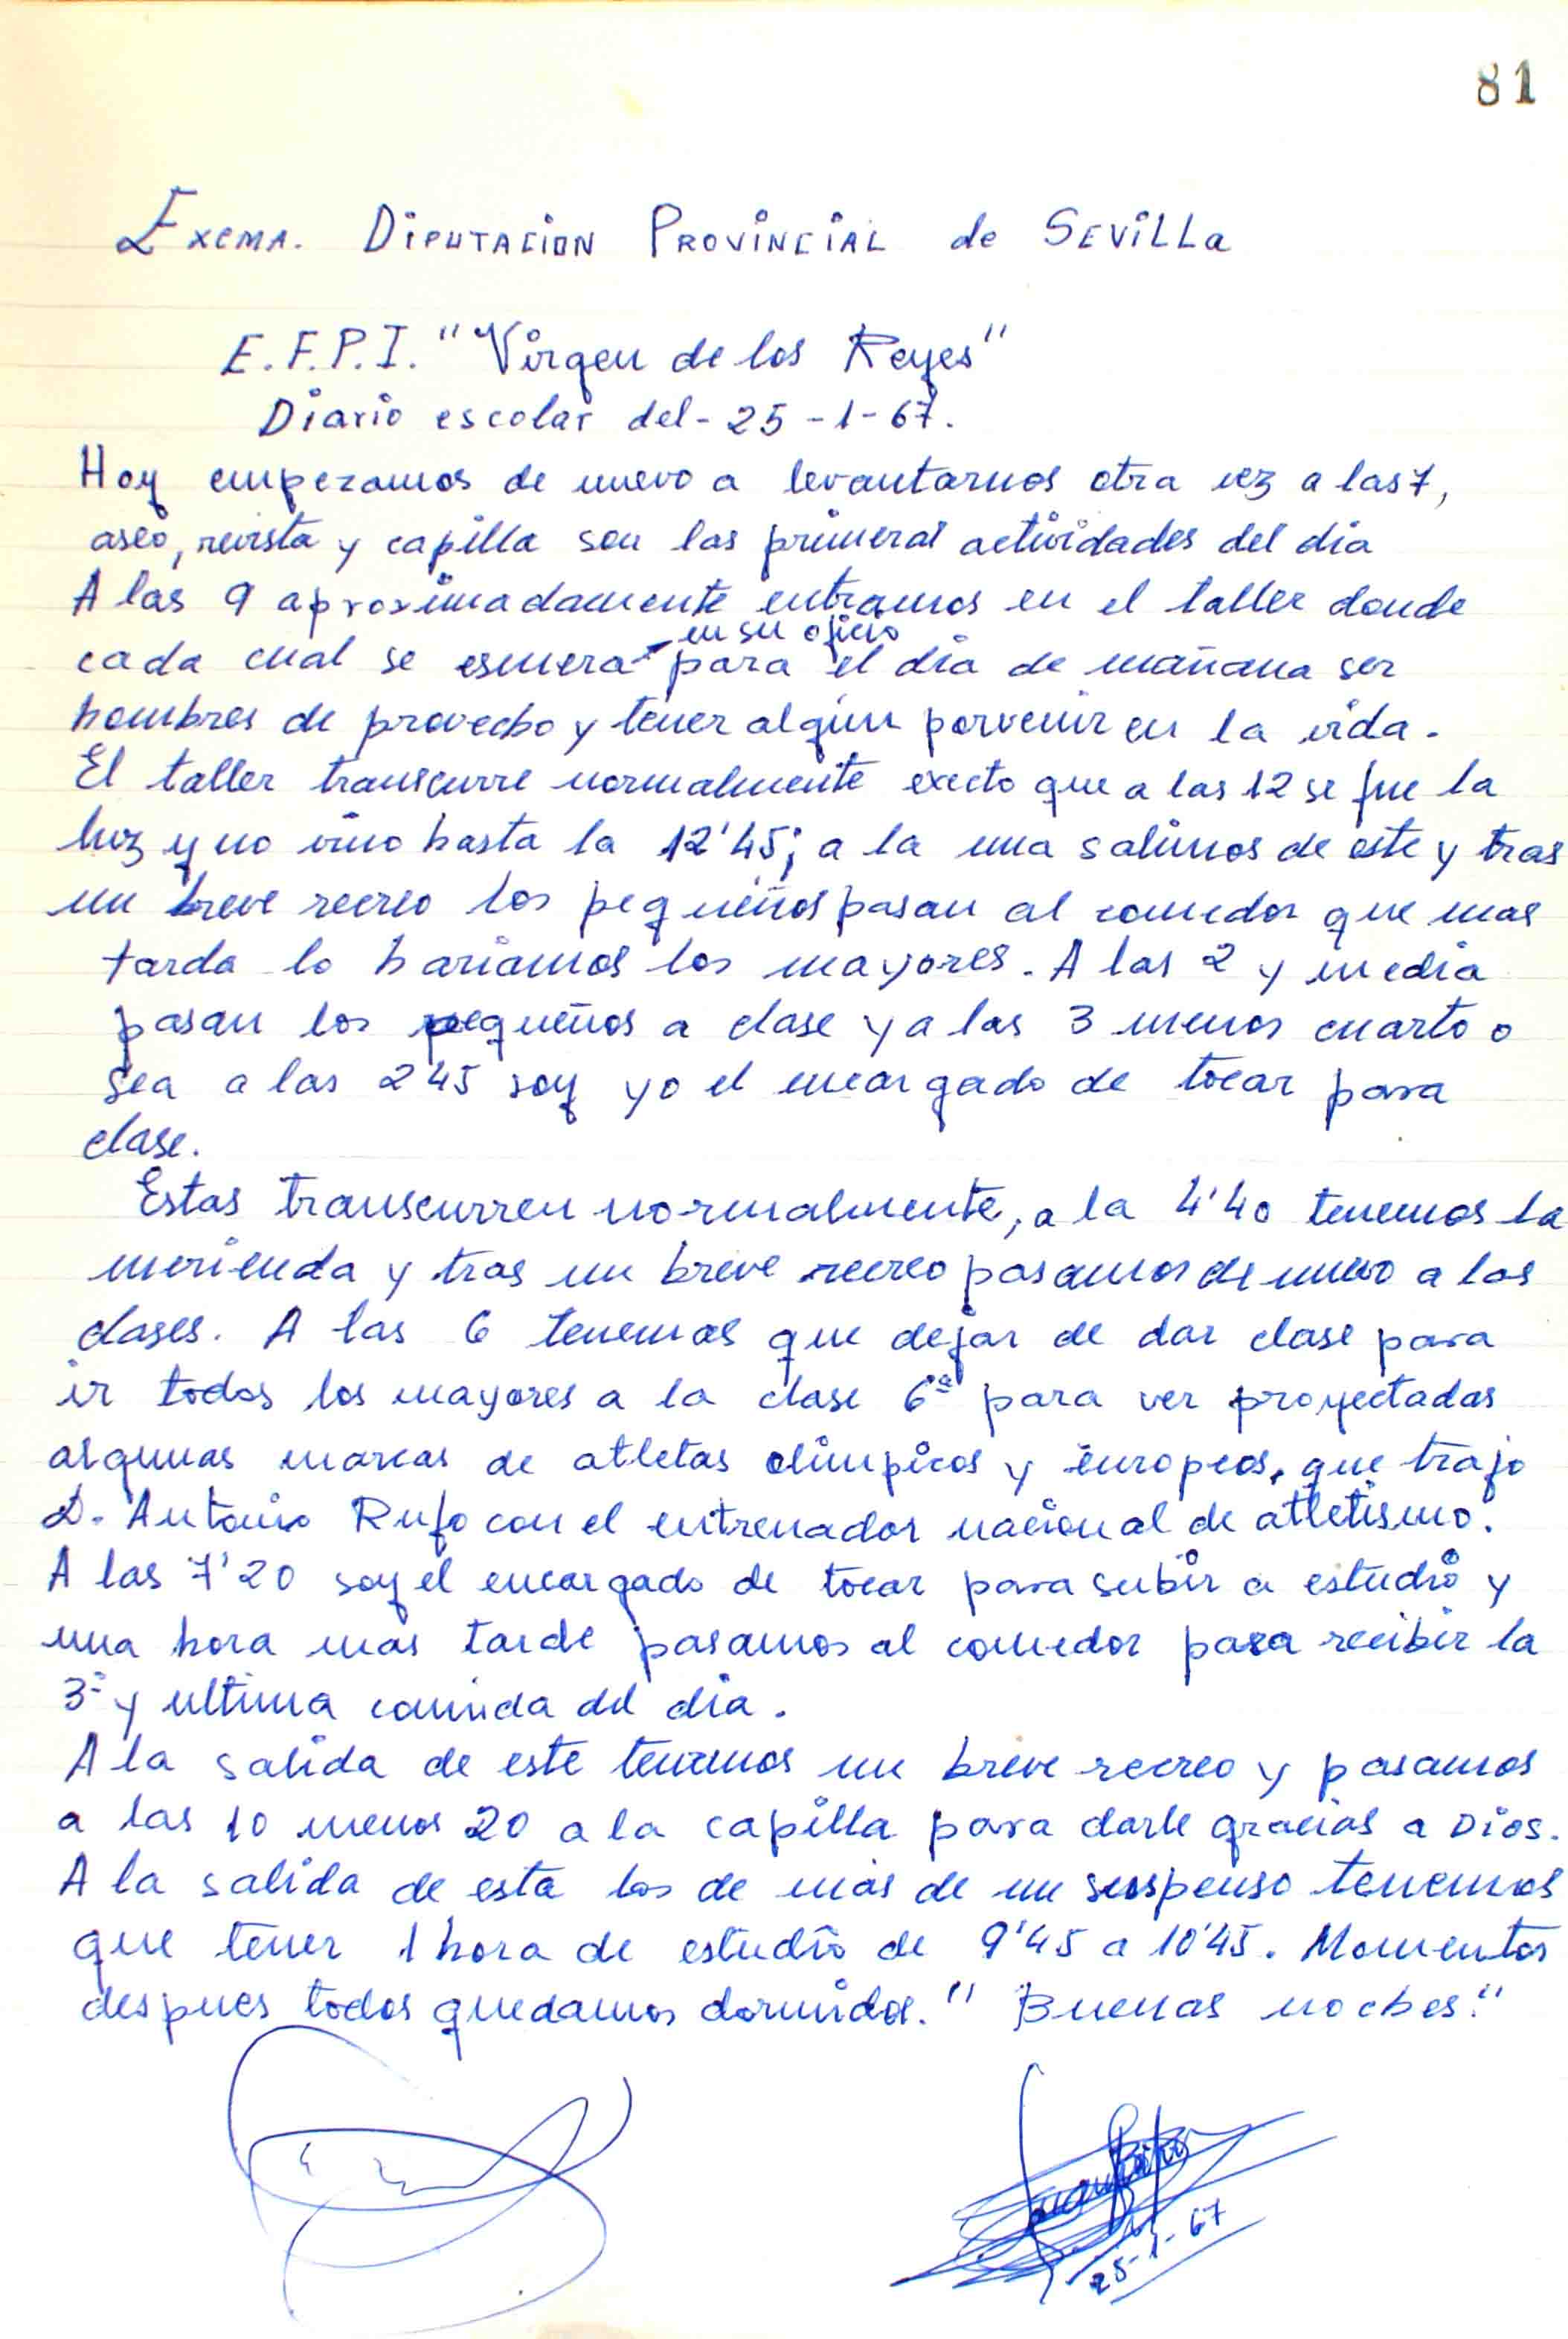 81
Excma. Diputacion Provincial de Sevilla
E.F.P.I. "Virgen de los Reyes"
Diario escolar del - 25 - 1 - 67.
Hoy empezamos de nuevo a levantarnos otra vez a las 7,
aseo, revista y capilla son las primeras actividades del dia
A las 9 aproximadamente entramos en el taller donde
en su oficio
cada cual se esmera para el dia de mañana ser
hombres de provecho y tener algún porvenir en la vida.
El taller transcurre normalmente execto que a las 12 se fue la
luz y no vino hasta la 12'45; a la una salimos de este y tras
un breve recreo los pequeños pasan al comedor que mas
tarda lo hariamos los mayores. A las 2 y media
pasan los pequeños a clase y a las 3 menos cuarto o
sea a las 2'45 soy yo el encargado de tocar para
clase.
Estas transcurren normalmente, a la 4'40 tenemos la
merienda y tras un breve recreo pasamos de nuevo a las
clases. A las 6 tenemos que dejar de dar clase para
ir todos los mayores a la clase 6ª para ver proyectadas
algunas marcas de atletas olimpicos y europeos, que trajo
D. Antonio Rufo con el entrenador nacional de atletismo.
A las 7'20 soy el encargado de tocar para subir a estudio y
una hora mas tarde pasamos al comedor para recibir la
3ª y ultima comida del dia.
A la salida de este tenemos un breve recreo y pasamos
a las 10 menos 20 a la capilla para darle gracias a Dios.
A la salida de esta los de mas de un suspenso tenemos
que tener 1 hora de estudio de 9'45 a 10'45. Momentos
despues todos quedamos dormidos. "Buenas noches."
25-1-67